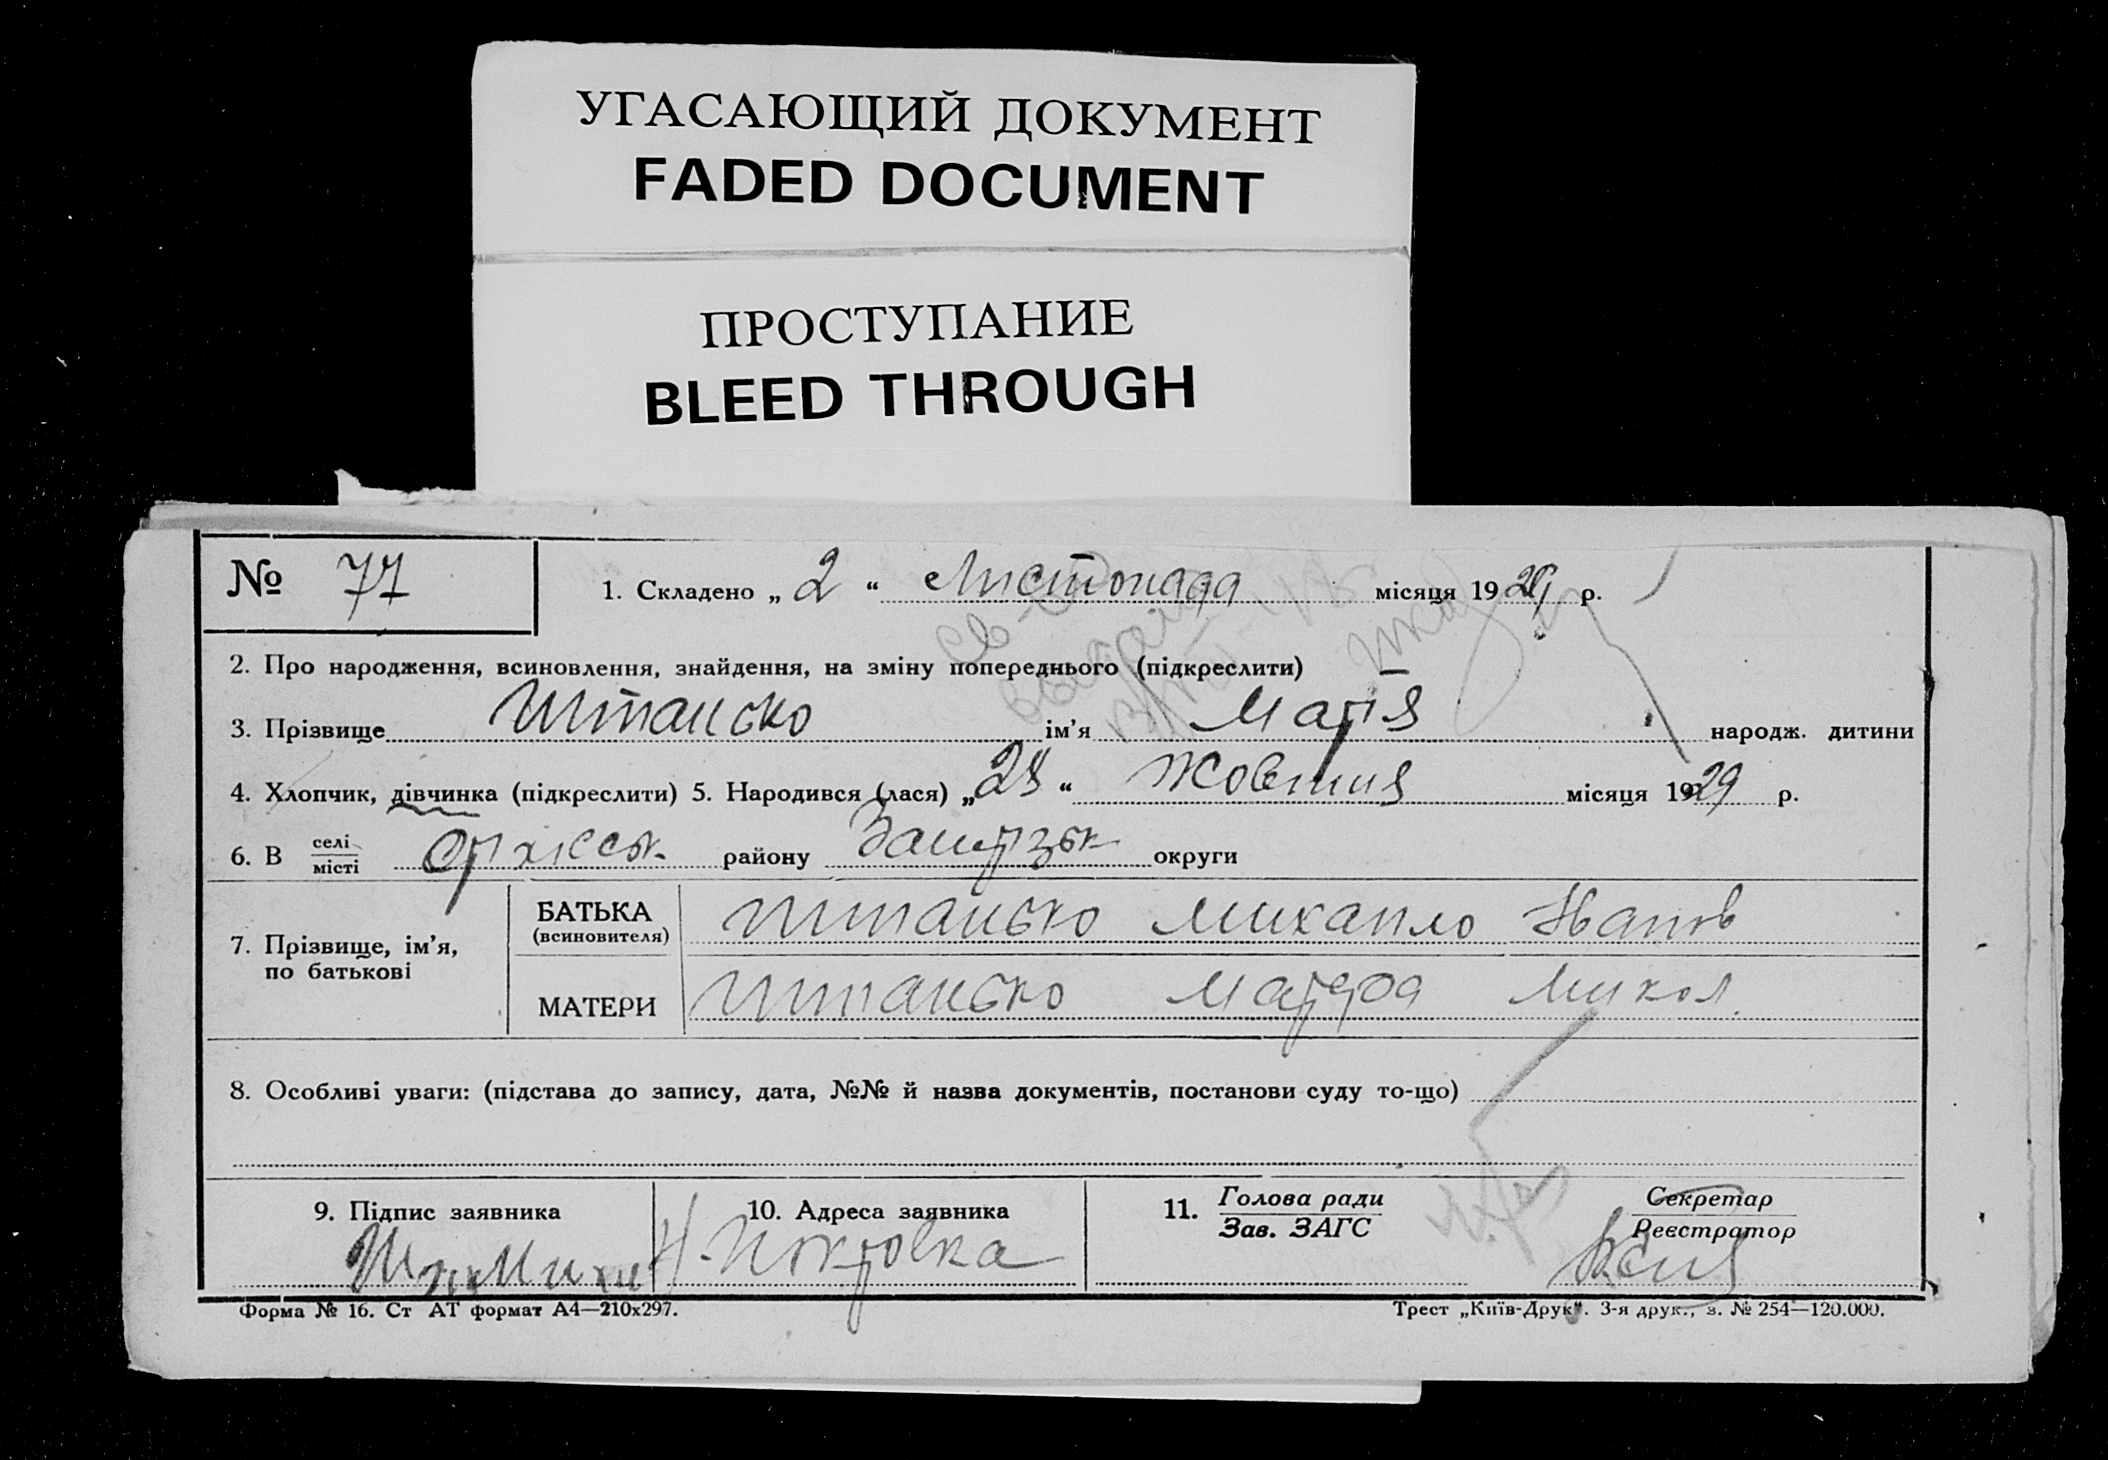 УГАСАЮЩИЙ ДОКУМЕНТ
FADED DOCUMENT
ПРОСТУПАНИЕ
BLEED THROUGH
№ 77
1. Складено „ 2 “ Листопада місяця 1929 р.
2. Про народження, всиновлення, знайдення, на зміну попереднього (підкреслити)
3. Прізвище Штанько ім’я Марія народж. дитини
4. Хлопчик, дівчинка (підкреслити) 5. Народився (лася) „ 28 “ Жовтня місяця 1929 р.
6. В селі
місті
Оріхівськ. району Запорізьк округи
7. Прізвище, ім’я,
по батькові
БАТЬКА
(всиновителя)
Штанько Михайло Іванов
МАТЕРИ
Штанько Микол.
8. Особливі уваги: (підстава до запису, дата, №№ й назва документів, постанови суду то-що)
9. Підпис заявника
10. Адреса заявника
Н-Покровка
11. Голова ради
Зав. ЗАГС
Секретар
Реєстратор
Форма № 16. Ст АТ формат А4—210х297.
Трест „Київ-Друк“. 3-я друк., з. № 254—120.000.